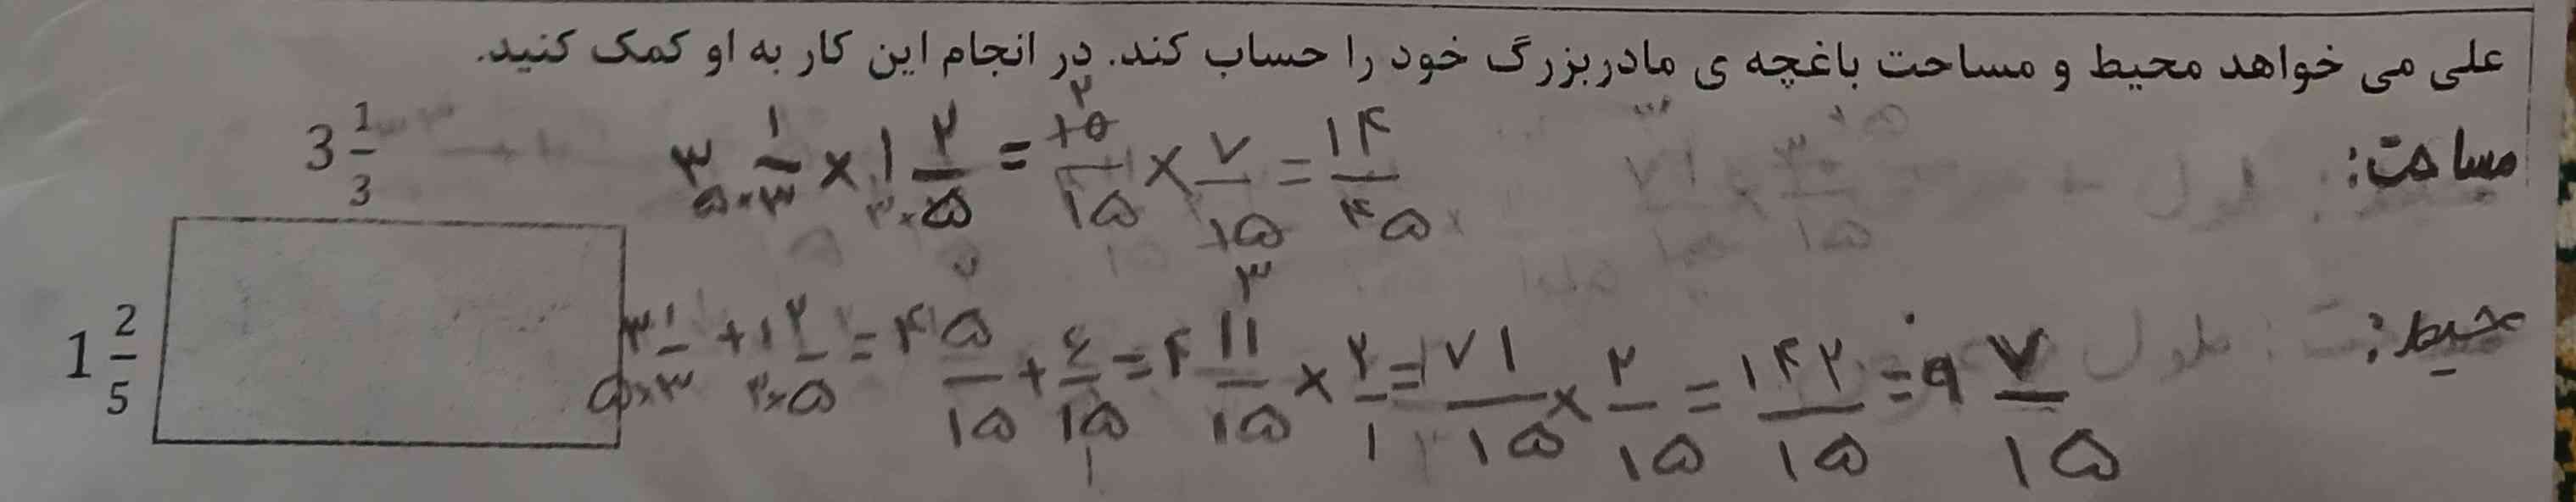 علی می خواهد محیط و مساحت باغچه ی مادربزرگ خود را حساب کند. در انجام این کار به او کمک کنید.
مساحت:
3 1/3
۳ ۱/۳ × ۱ ۲/۵ = ۱۵/۱۵ × ۷/۱۵ = ۱۴/۴۵
1 2/5
محیط:
۳ ۱/۳ + ۱ ۲/۵ = ۴ ۵/۱۵ + ۶/۱۵ = ۴ ۱۱/۱۵ × ۲/۱ = ۷۱/۱۵ × ۲/۱۵ = ۱۴۲/۱۵ = ۹ ۷/۱۵